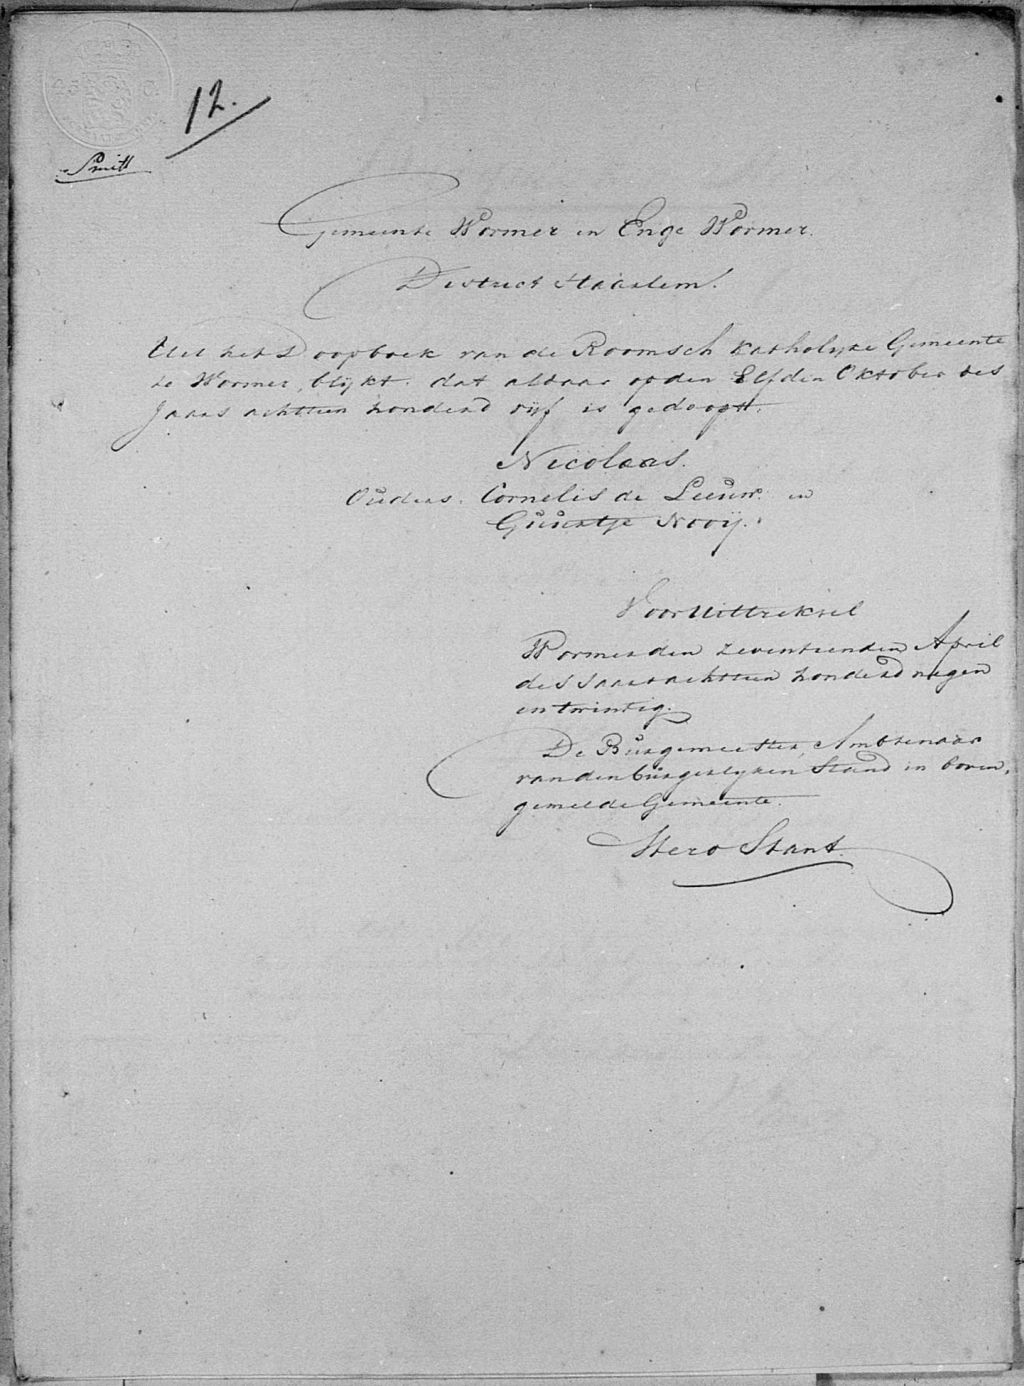 12.
Smitt
Gemeente Wormer en Enge Wormer.
District Haarlem.
Uit het Doopboek van de Roomsch Katholyke Gemeente
te Wormer, blykt. dat aldaar op den Elfden Oktober des
Jaars achttien honderd vyf is gedoopt.
Nicolaas.
Ouders. Cornelis de Leeuw. en
Guurtje Nooij.
Voor Uittreksel
Wormer den zeventienden April
des Jaars achttien honderd negen
en twintig.
De Burgemeester, Ambtenaar
van den burgerlyken Stand in boven,
gemelde Gemeente.
Stant.